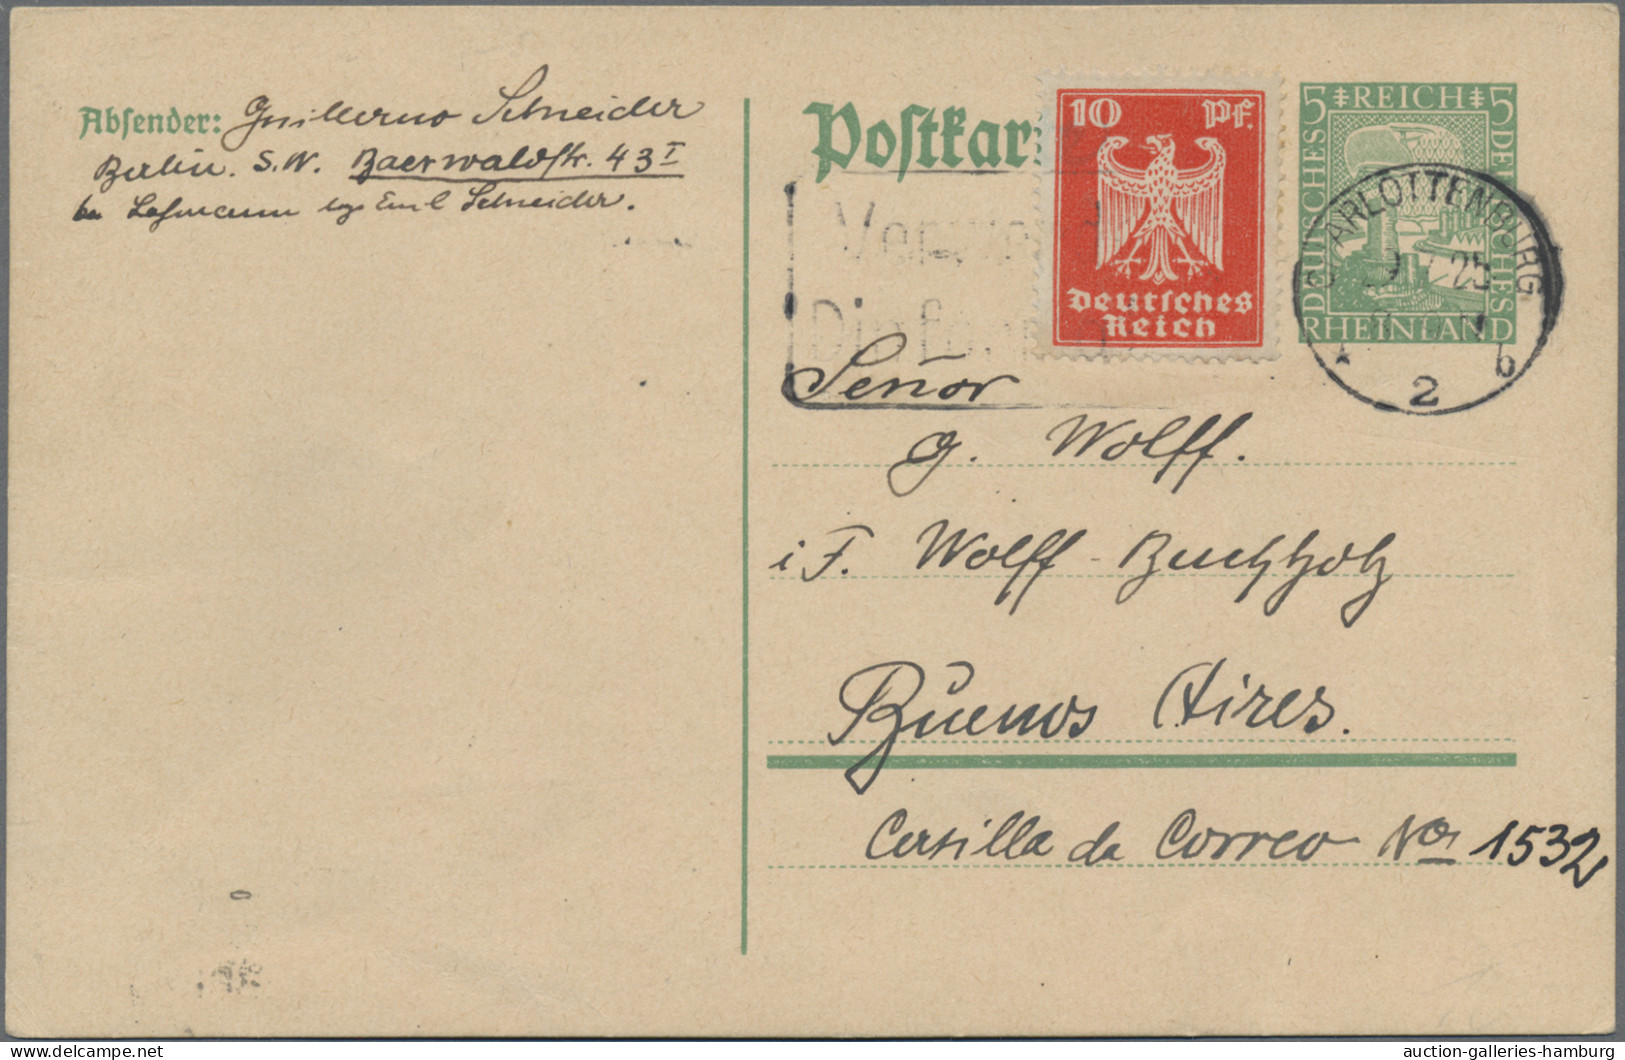 Absender: Guillermo Schneider
Berlin. S.W. Baerwaldstr. 43 I
bei Lehmann Emil Schneider.
Postkar
10 Pf.
Deutsches
Reich
5 REICH 5
DEUTSCHES
DEUTSCHES
RHEINLAND
CHARLOTTENBURG
9 25
2 b
Señor
G. Wolff.
i F. Wolff-Buchholz
Buenos Aires.
Casilla da Correo No 1532
auction-galleries-hamburg